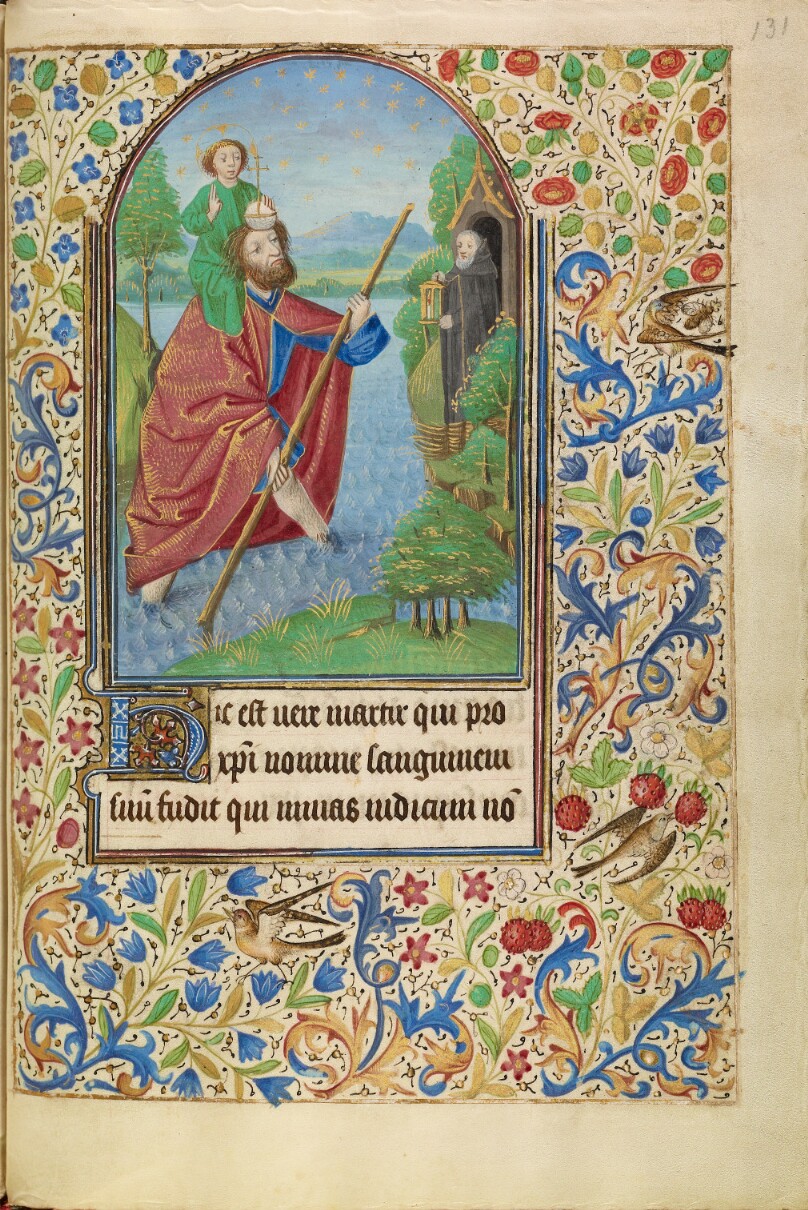 131
Hic est uere martir qui pro
xp̄i nomine sanguinem
suū fudit qui minas iudicum nō